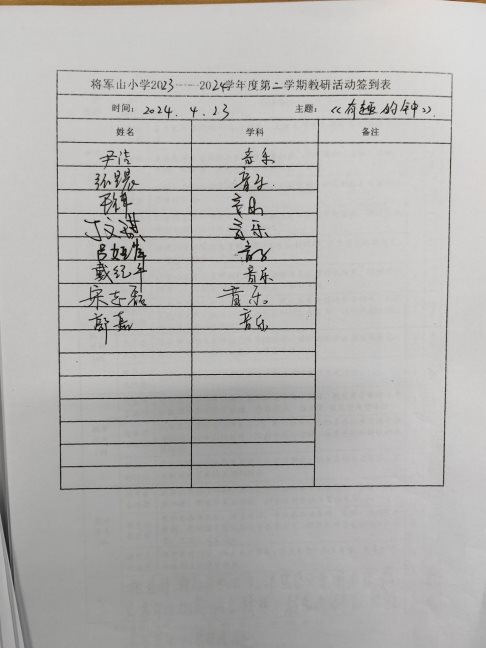 将军山小学2023——2024学年度第二学期教研活动签到表
时间：2024.4.23 主题：《有趣的钟》
姓名 学科 备注
尹洁 音乐
音乐
音乐
丁文 音乐
音乐
戴纪平 音乐
宋志磊 音乐
郭嘉 音乐